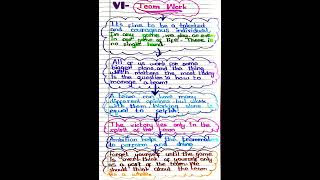 VI- Team Work
It's fine to be a talented
and courageous individual.
In any game we play or even
in our game of life There is
no single hand
All of us work for some
bigger plans and the thing
which matters the most today
is the question is how to
manage a team
A town can have many
different opinions but clash
with them Working alone is
equal to selfish
The victory lies only in the
spirit of the team
Ambition helps the
to perform and drive
Forget yourself until the game
is over think of yourself only
as a part of the team We
should think about the team
as a whole